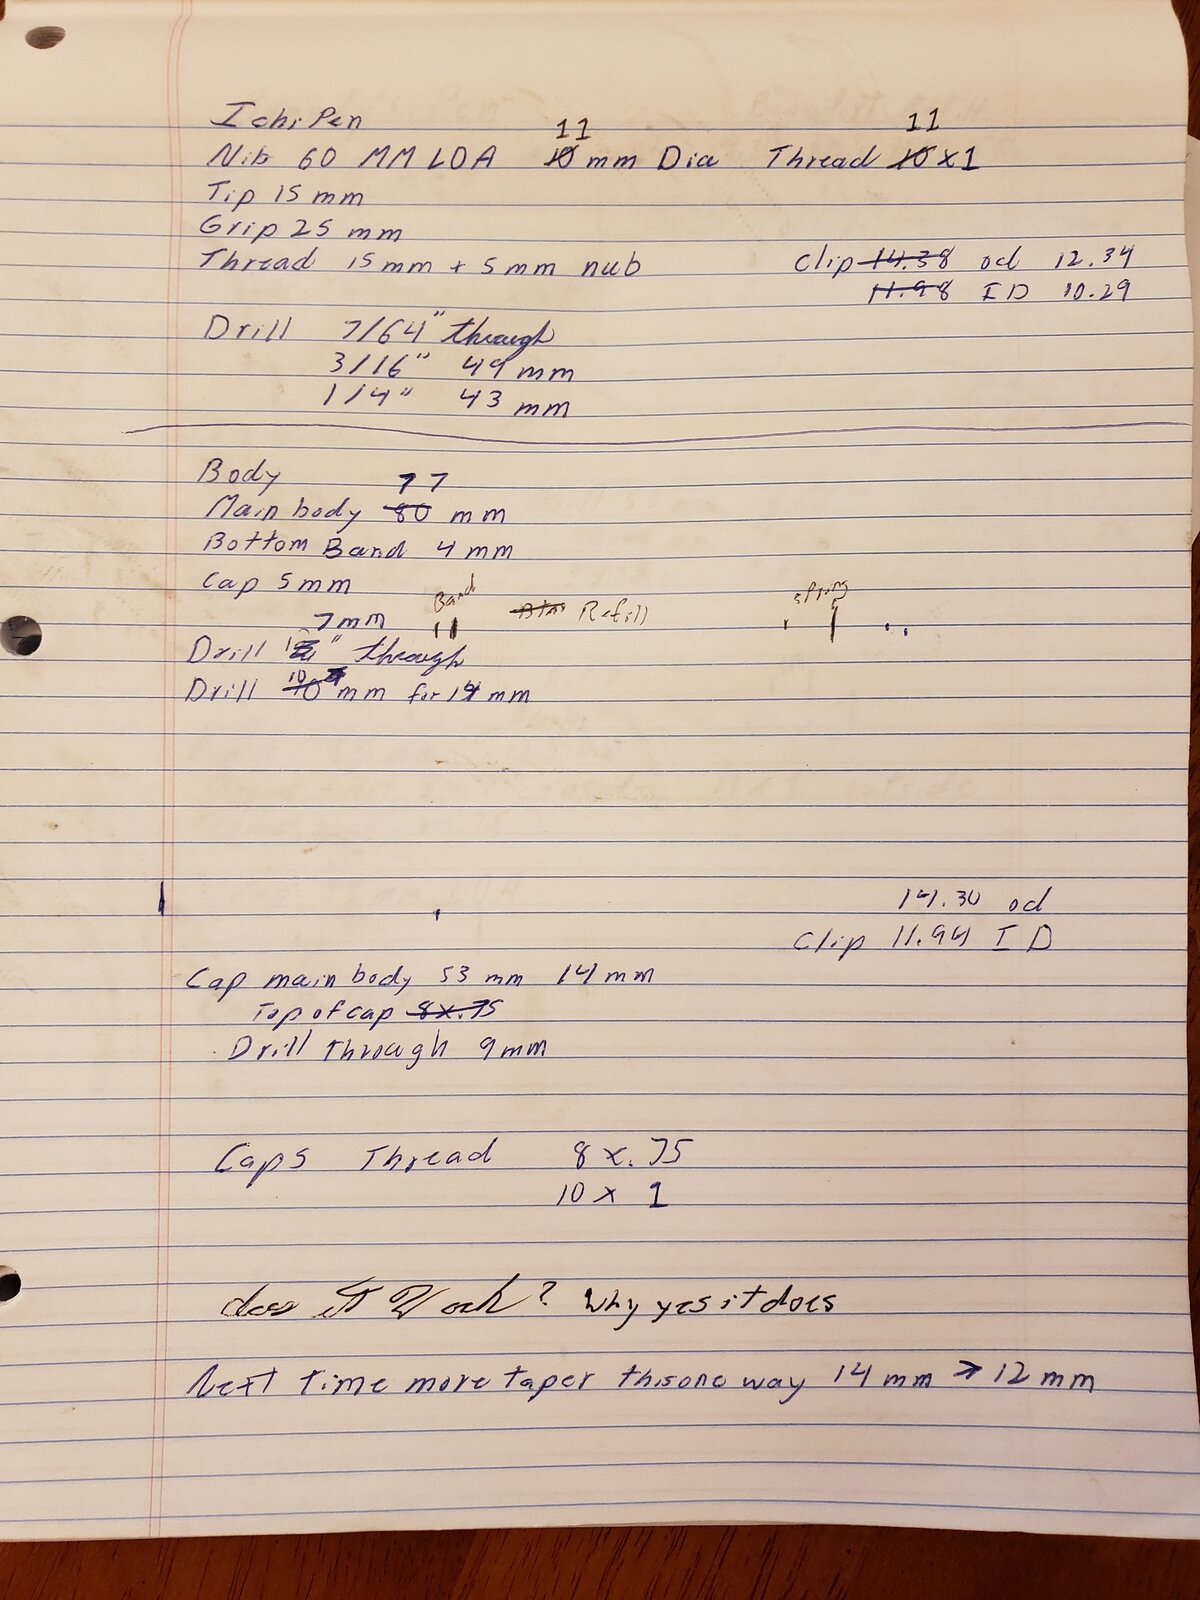 Ichi Pen
11 11
Nib 60 MM LOA 10 mm Dia Thread 10 x1
Tip 15 mm
Grip 25 mm
Thread 15mm + 5mm nub
Clip 14.38 od 12.34
11.98 ID 10.29
Drill 7/64" through
3/16" 49 mm
1/4" 43 mm
Body 77
Main body 80 mm
Bottom Band 4 mm
Cap 5mm
Band Refill spring
7mm
Drill " through
Drill 10 mm for 14 mm
14.30 od
Clip 11.94 ID
Cap main body 53 mm 14mm
Top of cap 8x.75
Drill Through 9mm
Caps Thread 8x.75
10 x 1
does it Work? Why yes it does
Next time more taper this one way 14 mm → 12 mm